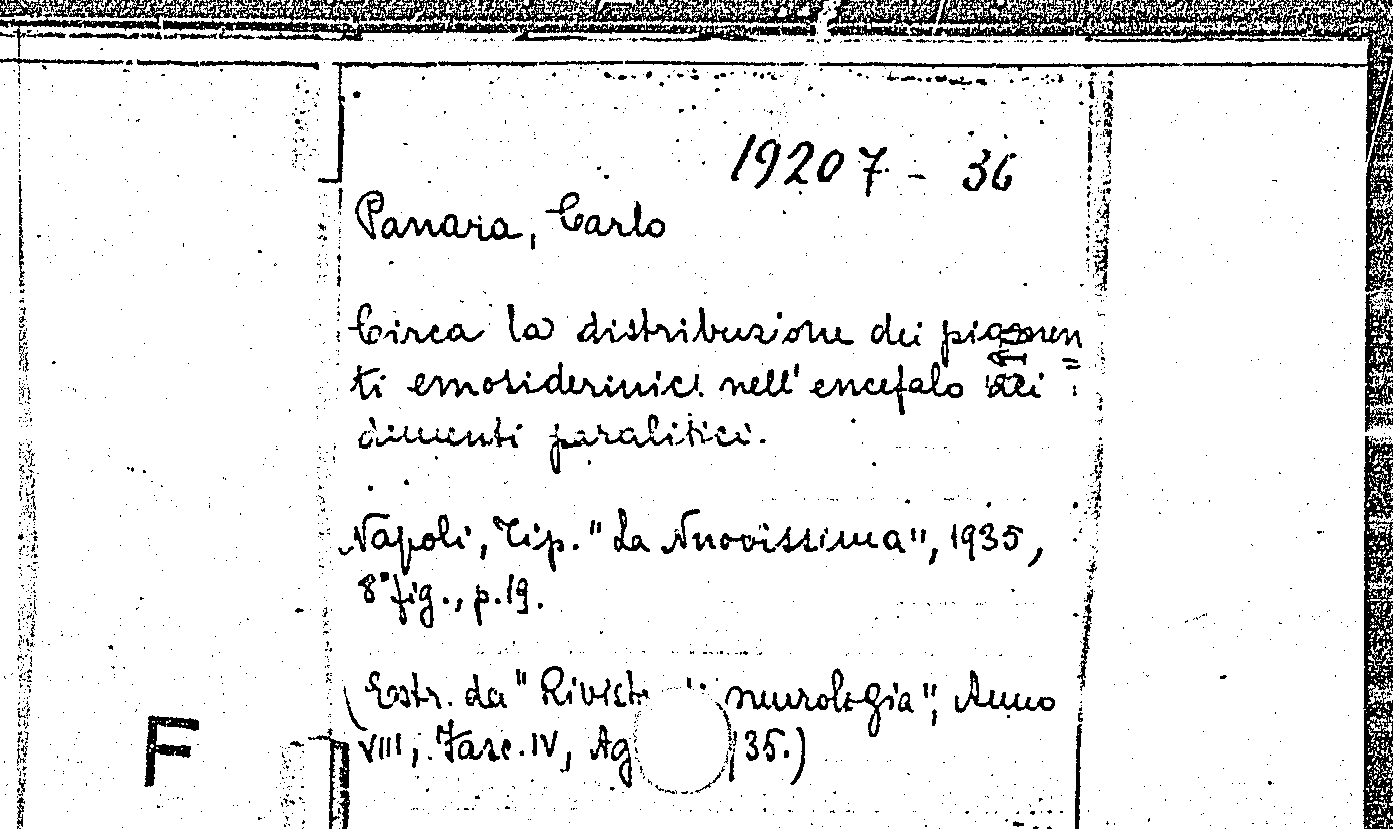 19207 - 36
Panara, Carlo
Circa la distribuzione dei pigmen=
ti emosiderinici nell' encefalo dei
dimenti paralitici.
Napoli, Tip. "La Nuovissima", 1935,
8° fig., p. 19.
(Estr. da " neurologia", Anno
VIII, Fasc. IV, 35.)
F